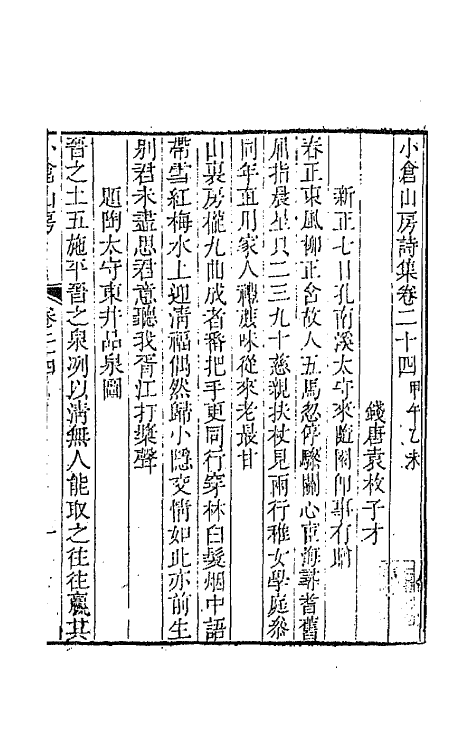 小倉山房詩集卷二十四 甲午乙未
錢唐袁枚子才
新正七日孔南溪太守來隨園即事有贈
春正東風柳正舍故人五馬忽停驂關心宦海諸耆舊
屈指晨星只二三九十慈親扶杖見兩行稚女學庭參
同年直用家人禮蔗味從來老最甘
山裏房櫳九曲成者番把手更同行穿林白髮烟中語
帶雪紅梅水上迎清福偶然歸小隱交情如此亦前生
別君未盡思君意聽我胥江打槳聲
題陶太守東井品泉圖
晉之土五施平晉之泉冽以清無人能取之往往羸其
小倉山房
卷二十四
一